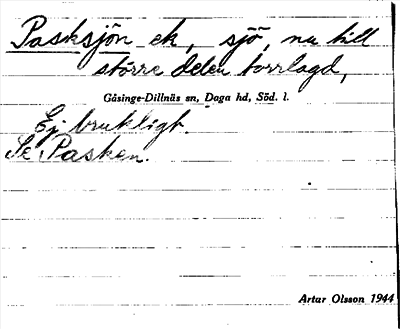 Pasksjön ek, sjö, nu till
större delen torrlagd,
Gåsinge-Dillnäs sn, Daga hd, Söd. l.
Ej brukligt.
Se Pasken.
Artar Olsson 1944